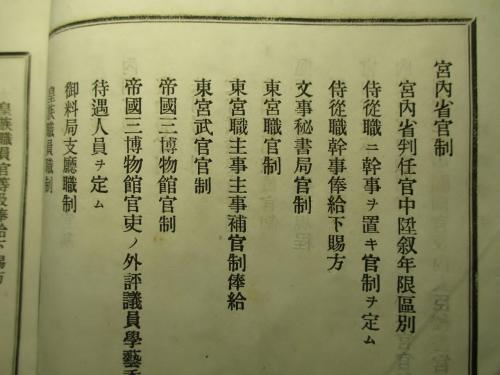 宮內省官制
宮內省判任官中陞叙年限區別
侍從職ニ幹事ヲ置キ官制ヲ定ム
侍從職幹事俸給下賜方
文事秘書局官制
東宮職官制
東宮職主事主事補官制俸給
東宮武官官制
帝國三博物館官制
帝國三博物館官吏ノ外評議員學藝委
待遇人員ヲ定ム
御料局支廳職制
皇族職員職制
皇族職員官等級俸給下賜方